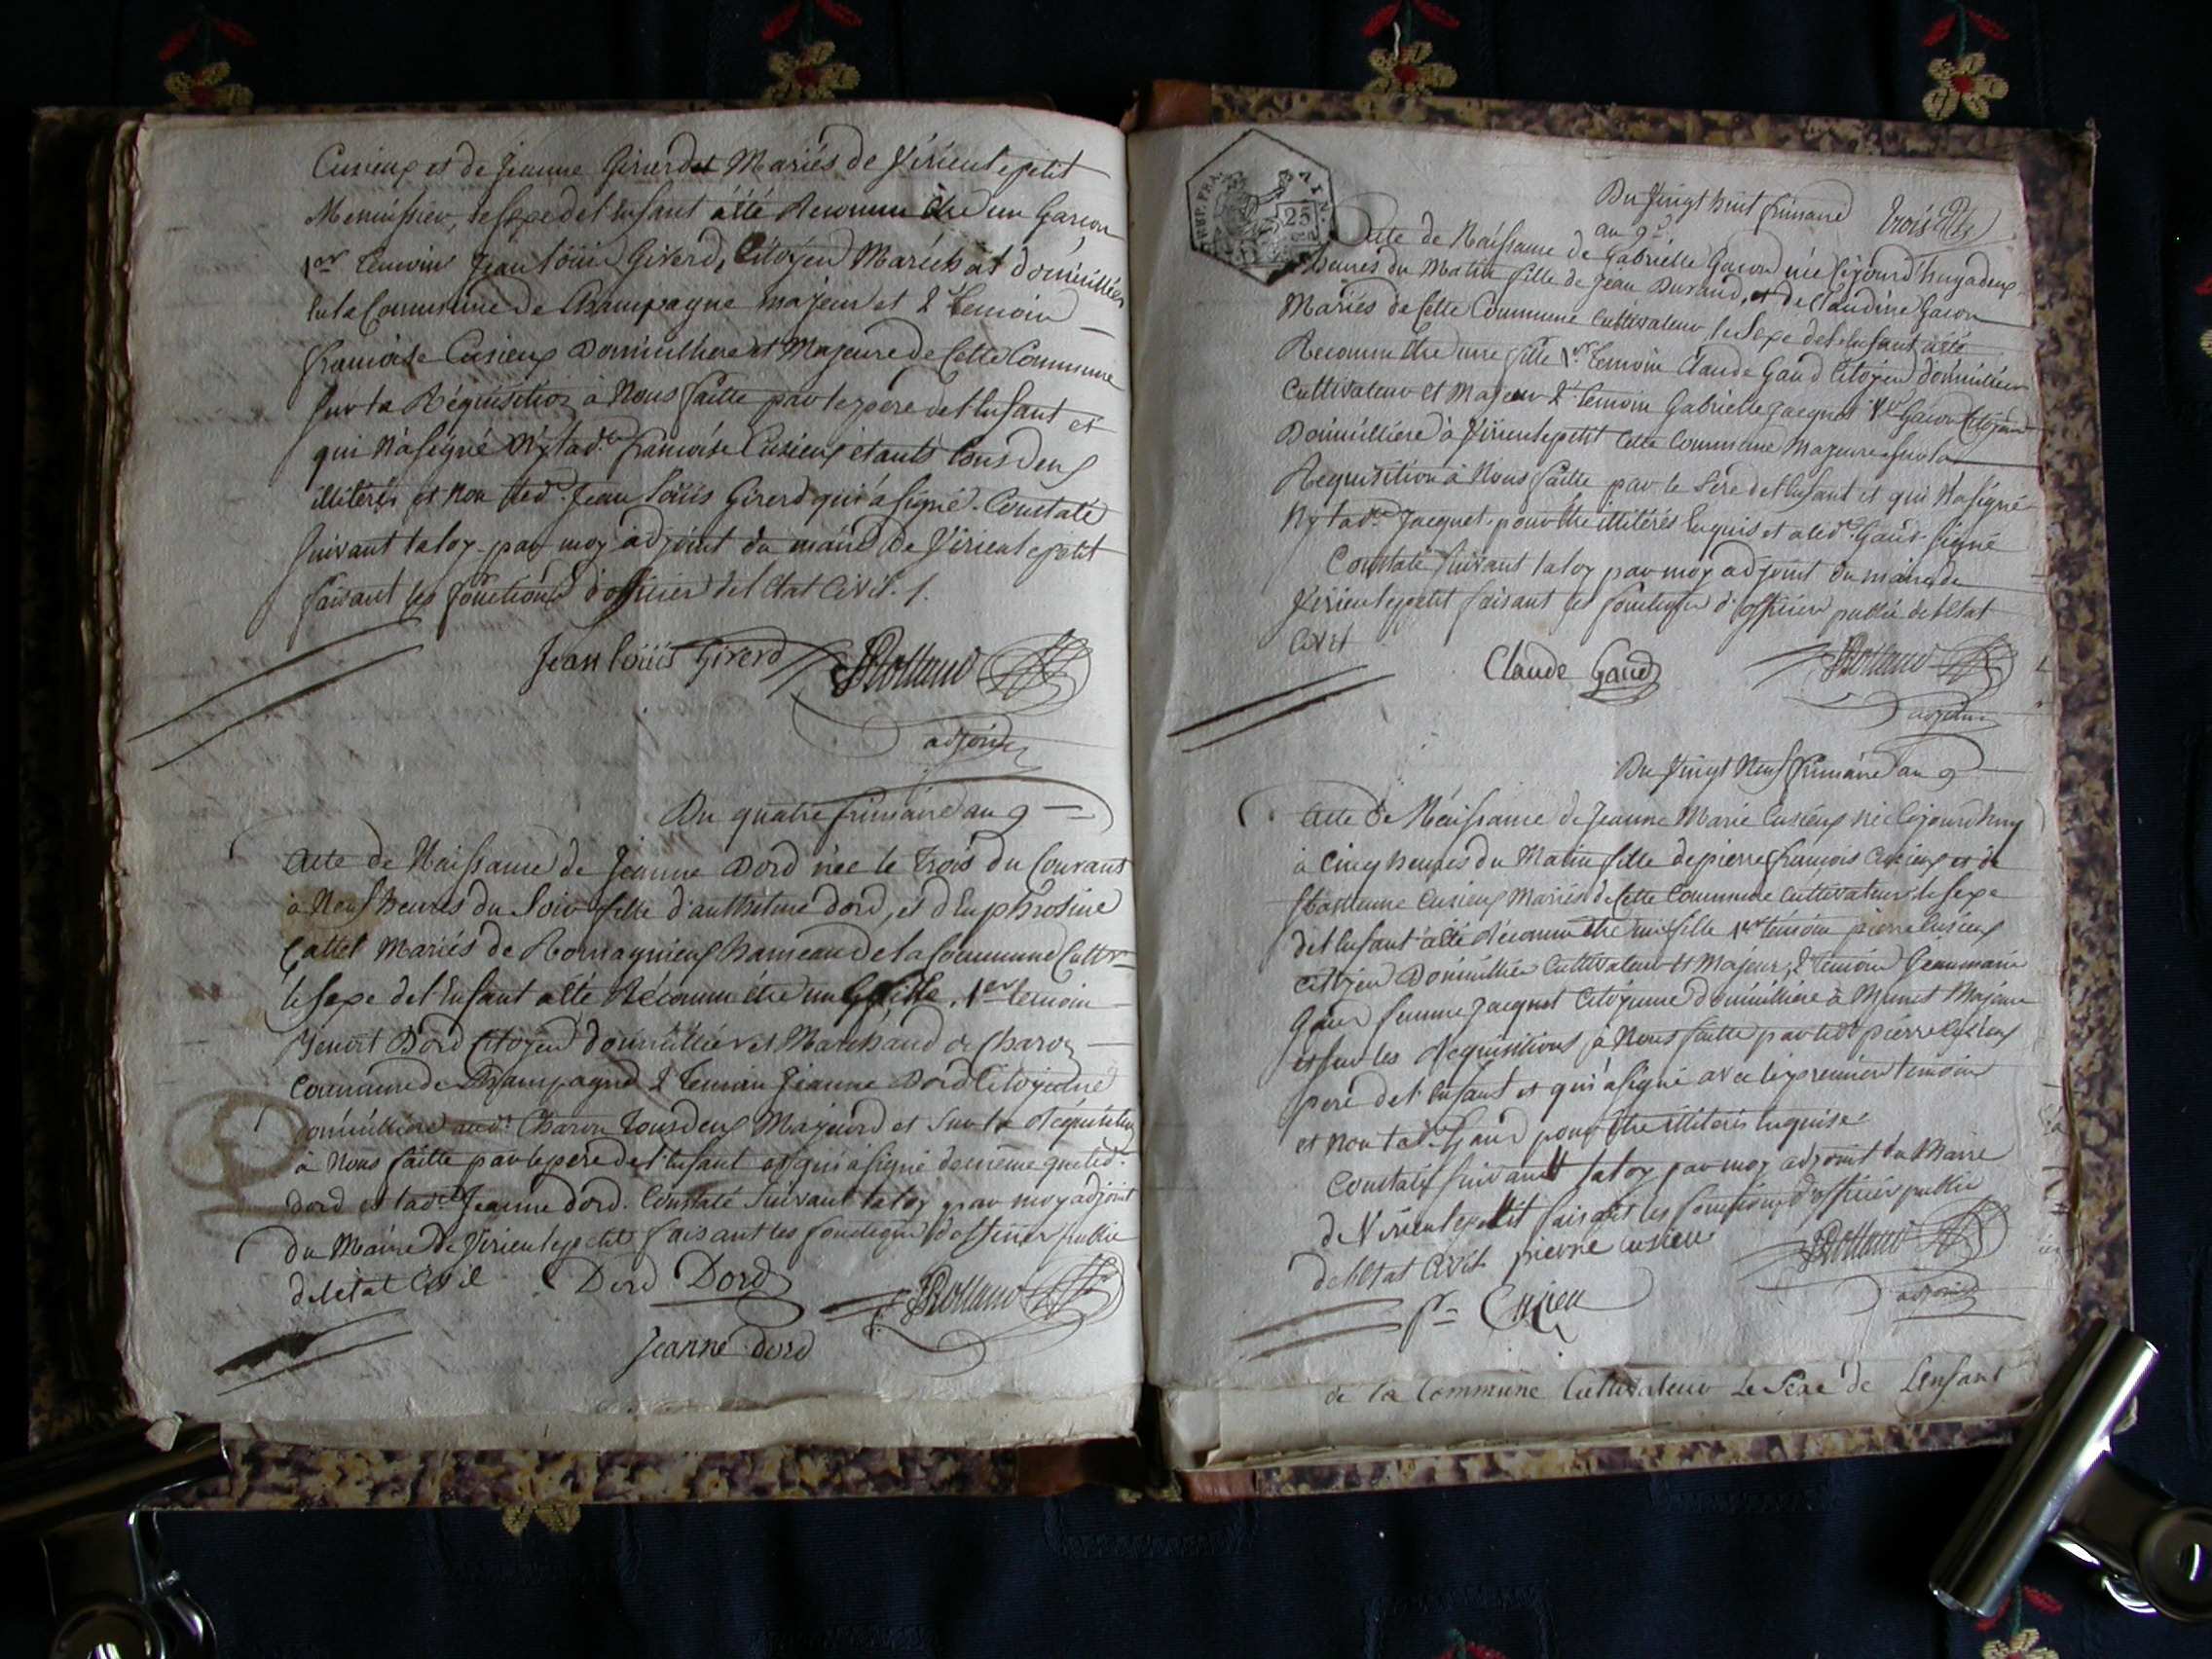 Cusieux et de Jeanne Girerd Mariés de Virieulepetit
Menuisier, le sexe del Enfant a été Reconnu être un Garcon
1er temoin Jean Louis Girerd, Citoyen Maréchal domicillier
la Commune de Champagne majeur et 2d temoin
francoise Cusieux Domicilliere et Majeure de Cette Commune
sur la Réquisition à Nous faitte par le pere del Enfant et
qui N'a signé Ny lade. francoise Cusieux étants tous deux
illitérés et non led. Jean Louis Girerd qui a signé. Constaté
suivant la loy par moy adjoint du maire De Virieulepetit
faisant les fonctions d'officier del Etat Civil.
Jean louis Girerd JBRolland
adjoint
Du quatre frimaire an 9
Acte de Naissance de Jeanne Dord née le trois du Courant
à Neuf heures du Soir fille d'anthelme dord, et d'Euphrosine
Callet Mariés de Romagnieux hameau de la Commune Cultr
le sexe del Enfant a été Réconnu être un fille, 1er temoin
Dord Citoyen domicillier et Marchand de Charon
Commune de Champagne 2 temoin Jeanne Dord Citoyenne
domicilliere aud. Charon tous deux Majeurs et sur la Réquisition
à Nous faitte par le pere del'Enfant et qui a signé de même que led.
dord et lade. Jeanne dord. Constaté suivant la loy par moy adjoint
du Maire de Virieulepetit faisant les fonctions d'officier public
del etat Civil Dord Dord JBRolland
Jeanne dord
REP. FRA. 25
Du Vingt huit frimaire
an 9e.
Acte de Naissance de Gabrielle Gacon née Cejourdhuy a deux
heures du Matin fille de Jean Durand, et de Claudine Gacon
Mariés de Cette Commune Cultivateur, le Sexe del Enfant a été
Reconnu être une fille 1er temoin Claude Gaud Citoyen domicillier
Cultivateur et Majeur 2d temoin Gabrielle Jacquet Ve Gacon Citoyenne
Domicilliere à Virieulepetit Cette Commune Majeure sur la
Requisition à Nous faitte par le Pere del Enfant et qui N'a signé
Ny lade. Jacquet pour être illitérés Enquis et a led. Gaud signé
Constaté suivant la loy par moy adjoint du maire de
Virieulepetit faisant les fonctions d'officier public del Etat
Civil
Claude Gaud JBRolland
adjoint
Du Vingt Neuf frimaire an 9
Acte de Naissance de Jeanne Marie Cusieux née Cejourdhuy
à Cinq heures du Matin fille de pierre francois Cusieux et de
Cusieux Mariés de Cette Commune Cultivateur le sexe
del Enfant a été Réconnu être une fille 1er témoin pierre Cusieux
Citoyen Domicillier Cultivateur et Majeur, 2 temoin Jeanmarie
Gaud femme Jacquet Citoyenne domicilliere à Munet Majeure
et sur les Requisitions à Nous faitte par led. pierre Cusieux
pere del Enfant et qui a signé avec le premier temoin
et non lade. Gaud pour être illiteris Enquise
Constaté suivant la loy par moy adjoint du Maire
de Virieulepetit faisant les fonctions d'officier public
del Etat Civil pierre cusieu JBRolland
pre Cusieu adjoint
de la Commune Cultivateur Le Sexe de Lenfant